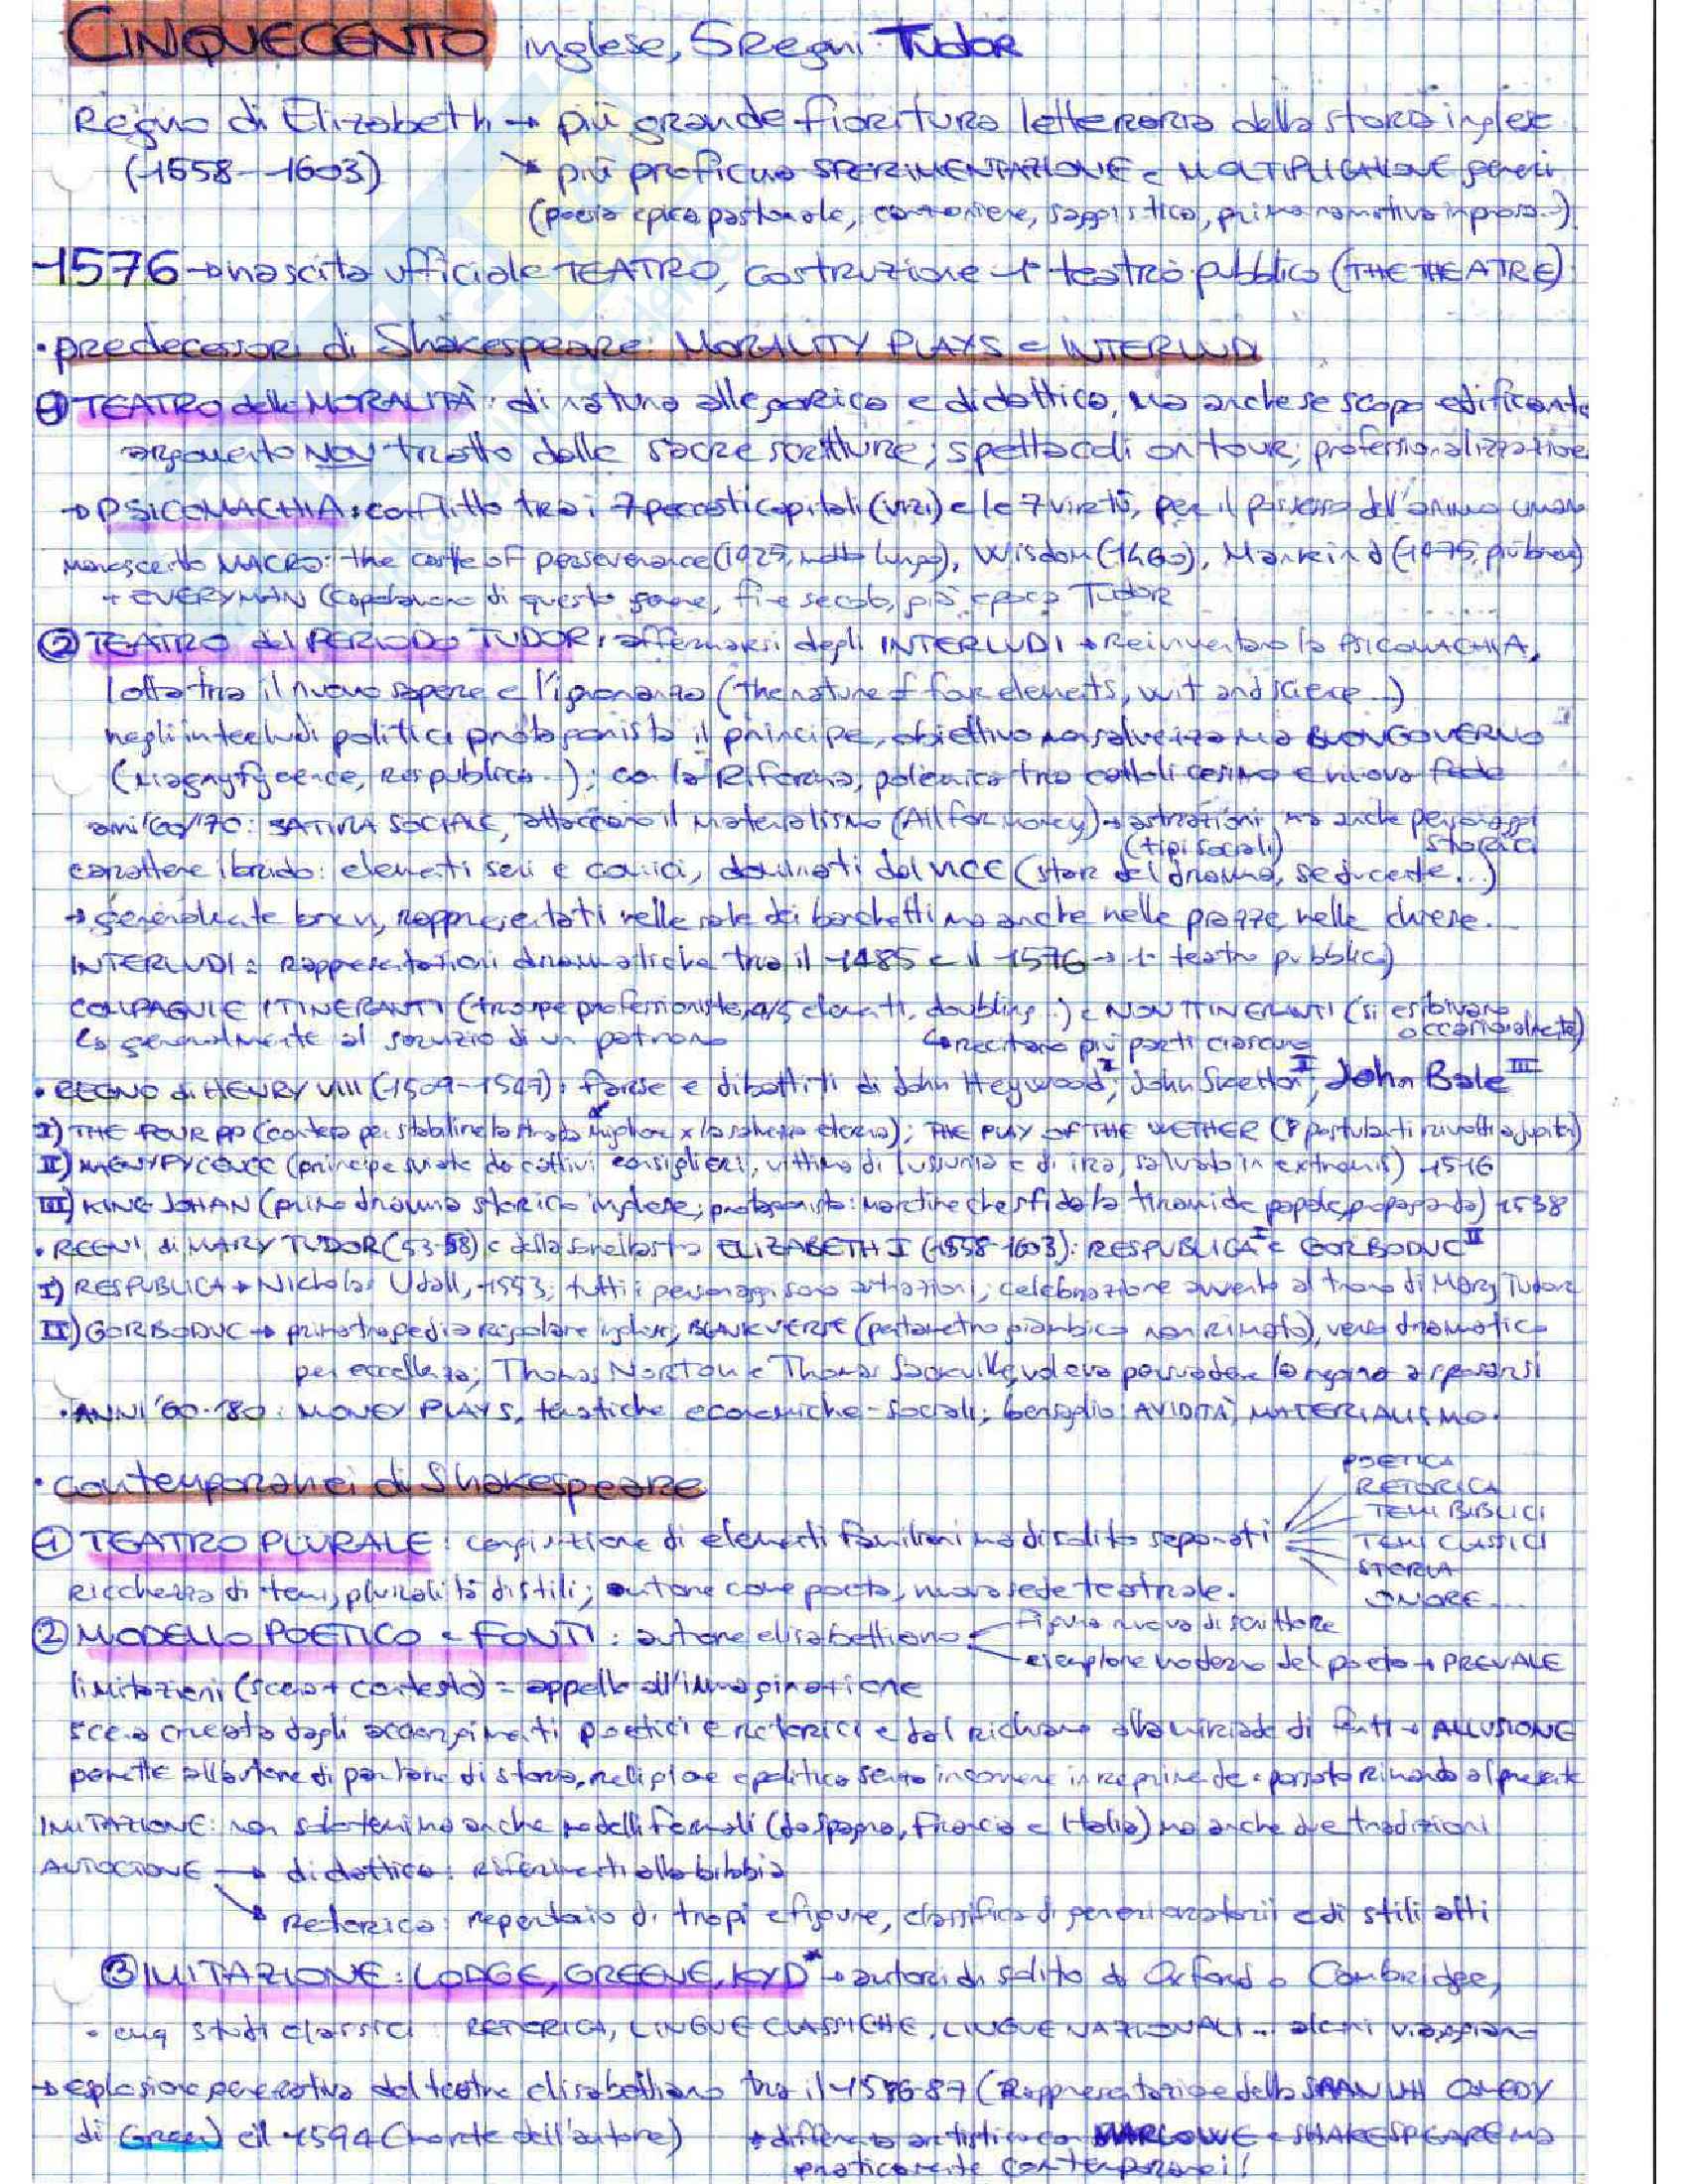 CINQUECENTO inglese, 5 Regni Tudor
Regno di Elizabeth → più grande fioritura letteraria della storia inglese
(1558-1603) ↘ più proficua SPERIMENTAZIONE e MOLTIPLICAZIONE generi
(poesia epica pastorale, canzoniere, saggistica, prima narrativa in prosa...)
1576 → nascita ufficiale TEATRO, costruzione 1° teatro pubblico (THE THEATRE)
• predecessori di Shakespeare: MORALITY PLAYS e INTERLUDI
① TEATRO delle MORALITÀ: di natura allegorica e didattica, ma anche se scopo edificante
argomento NON tratto dalle sacre scritture; spettacoli on tour; professionalizzazione
→ PSICOMACHIA: conflitto tra i 7 peccati capitali (vizi) e le 7 virtù, per il possesso dell'animo umano
manoscritto MACRO: the castle of perseverance (1425, molto lungo), Wisdom (1460), Mankind (1475, più breve)
+ EVERYMAN (capolavoro di questo genere, fine secolo, già epoca Tudor
② TEATRO del PERIODO TUDOR: affermarsi degli INTERLUDI → Reinventano la PSICOMACHIA,
lotta tra il nuovo sapere e l'ignoranza (the nature of four elements, wit and science...)
negli interludi politici protagonista il principe, obiettivo non salvezza ma BUONGOVERNO
(Magnyfycence, Respublica...); con la Riforma, polemica tra cattolicesimo e nuova fede
anni '60/'70: SATIRA SOCIALE, attaccano il materialismo (All for money) → astrazioni ma anche personaggi
(tipi sociali) storici
carattere ibrido: elementi seri e comici, dominati dal VICE (star del dramma, seducente...)
→ generalmente brevi, rappresentati nelle sale dei banchetti ma anche nelle piazze, nelle chiese...
INTERLUDI = rappresentazioni drammatiche tra il 1485 e il 1576 → 1° teatro pubblico)
COMPAGNIE ITINERANTI (troupe professioniste, 4/5 elementi, doubling...) e NON ITINERANTI (si esibivano
↳ generalmente al servizio di un patrono ↳ recitano più parti ciascuno occasionalmente)
• REGNO di HENRY VIII (1509-1547): farse e dibattiti di John Heywood I, John Skelton II, John Bale III
I) THE FOUR PP (contesa per stabilire la strada migliore x la salvezza eterna); THE PLAY OF THE WETHER (8 postulanti rivolti a Jupiter)
II) MAGNYFYCENCE (principe sviato da cattivi consiglieri, vittima di lussuria e di ira, salvato in extremis) 1516
III) KING JOHAN (primo dramma storico inglese; protagonista: martire che sfida la tirannide papale, propaganda) 1538
• REGNI di MARY TUDOR (53-58) e della sorellastra ELIZABETH I (1558-1603): RESPUBLICA I e GORBODUC II
I) RESPUBLICA → Nicholas Udall, 1553; tutti i personaggi sono astrazioni; celebrazione avvento al trono di Mary Tudor
II) GORBODUC → prima tragedia regolare inglese; BLANK VERSE (pentametro giambico non rimato), verso drammatico
per eccellenza; Thomas Norton e Thomas Sackville, voleva persuadere la regina a sposarsi
• ANNI '60-'80: MONEY PLAYS, tematiche economiche-sociali; bersaglio: AVIDITÀ, MATERIALISMO.
• contemporanei di Shakespeare
① TEATRO PLURALE: congiunzione di elementi familiari ma di solito separati
POETICA
RETORICA
TEMI BIBLICI
TEMI CLASSICI
STORIA
ONORE...
Ricchezza di temi, pluralità di stili; autore come poeta, nuova sede teatrale.
② MODELLO POETICO e FONTI: autore elisabettiano figura nuova di scrittore
esemplare moderno del poeta → PREVALE
limitazioni (scena + contesto) = appello all'immaginazione
scena creata dagli accorgimenti poetici e retorici e dal richiamo alla miriade di fonti → ALLUSIONE
permette all'autore di parlare di storia, religione e politica senza incorrere in reprimende: passato rimanda al presente
IMITAZIONE: non solo temi ma anche modelli formali (da Spagna, Francia e Italia) ma anche due tradizioni
AUTOCTONE → didattica: riferimenti alla bibbia
↘ Retorica: repertorio di tropi e figure, classifica di generi oratorii e di stili atti
③ IMITAZIONE: LODGE, GREENE, KYD* → autori di solito da Oxford o Cambridge,
studi classici: RETORICA, LINGUE CLASSICHE, LINGUE NAZIONALI... alcuni viaggiano
→ esplosione generativa del teatro elisabettiano tra il 1586-87 (Rappresentazione della SPANISH COMEDY
di Green) e il 1594 (morte dell'autore) * differenza artistica con MARLOWE e SHAKESPEARE ma
praticamente contemporanei!